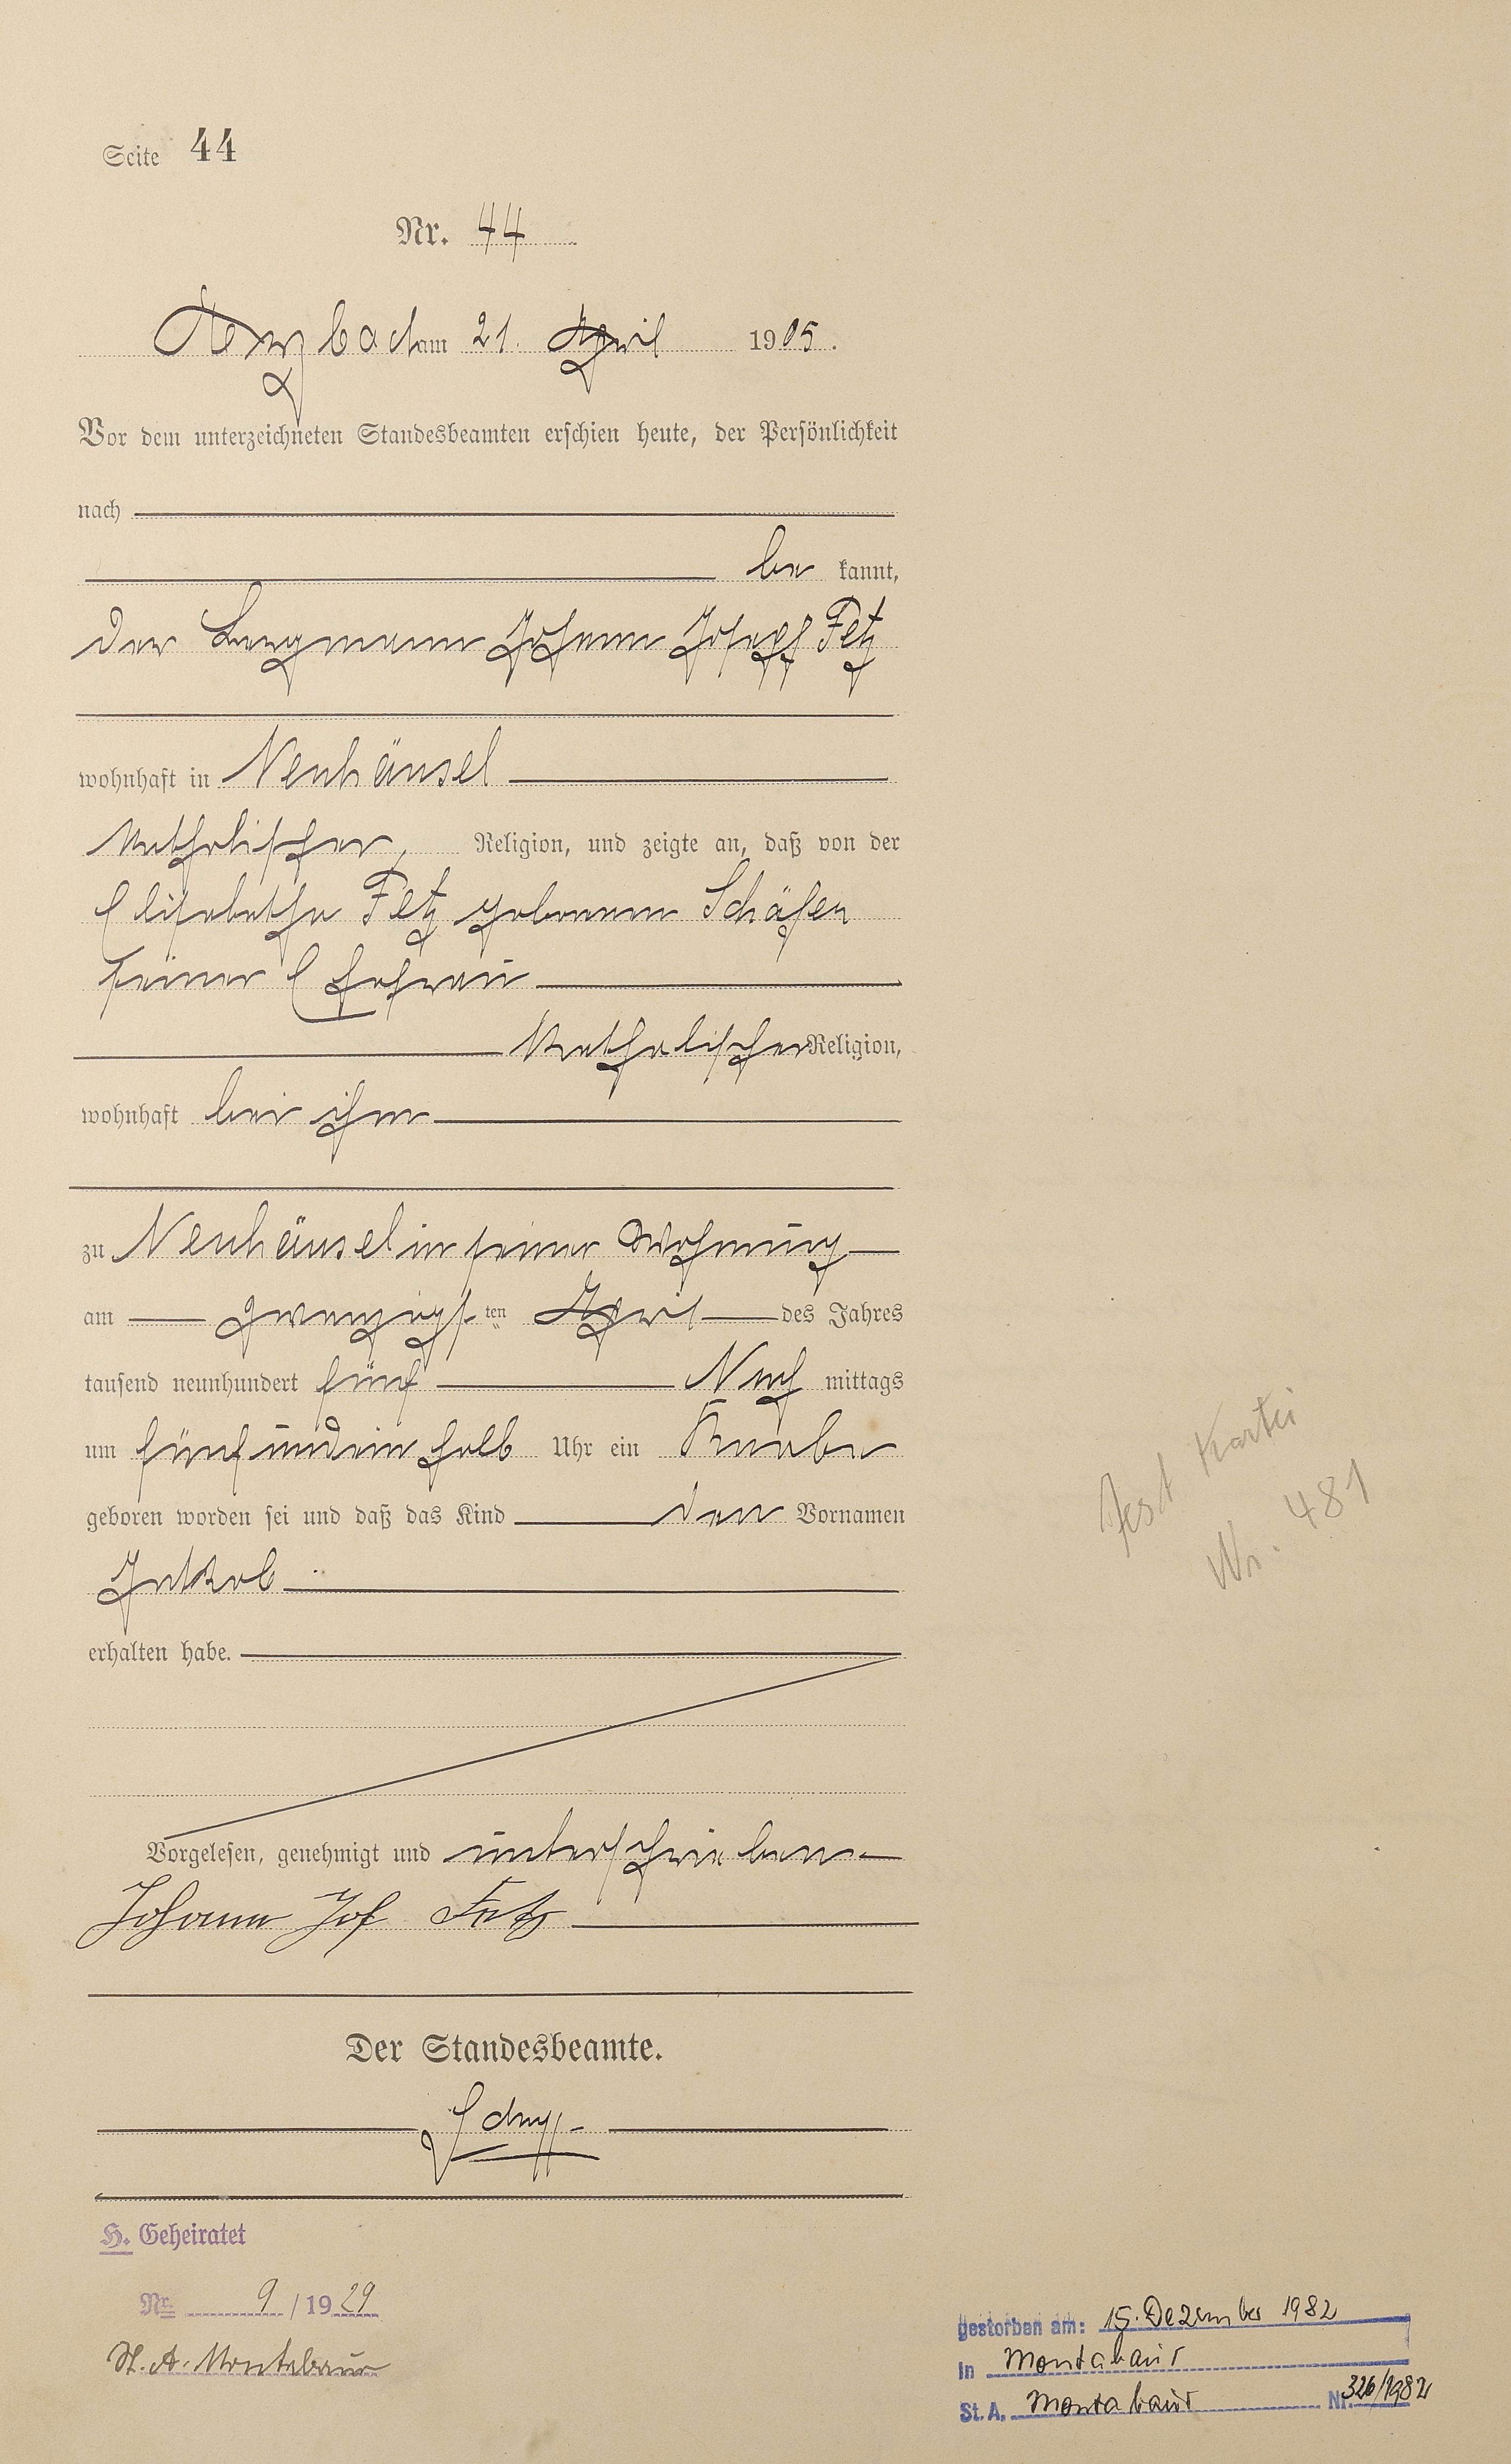 Seite 44
Nr. 44
Arzbach am 21. April 1905.
Vor dem unterzeichneten Standesbeamten erschien heute, der Persönlichkeit
nach
be kannt,
der Bergmann Johann Joseph Fetz
wohnhaft in Neuhäusel
katholischer, Religion, und zeigte an, daß von der
Elisabetha Fetz geborenen Schäfer
seiner Ehefrau
katholischer Religion,
wohnhaft bei ihm
zu Neuhäusel in seiner Wohnung
am zwanzigsten April des Jahres
tausend neunhundert fünf Nach mittags
um fünf und ein halb Uhr ein Knabe
geboren worden sei und daß das Kind den Vornamen
Jakob
erhalten habe.
Vorgelesen, genehmigt und unterschrieben
Johann Jos Fetz
Der Standesbeamte.
H. Geheiratet
Nr. 9/1929
St. A. Montabaur
Kartei
Nr. 481
gestorben am: 15. Dezember 1982
in Montabaur
St. A. Montabaur Nr. 326/1982